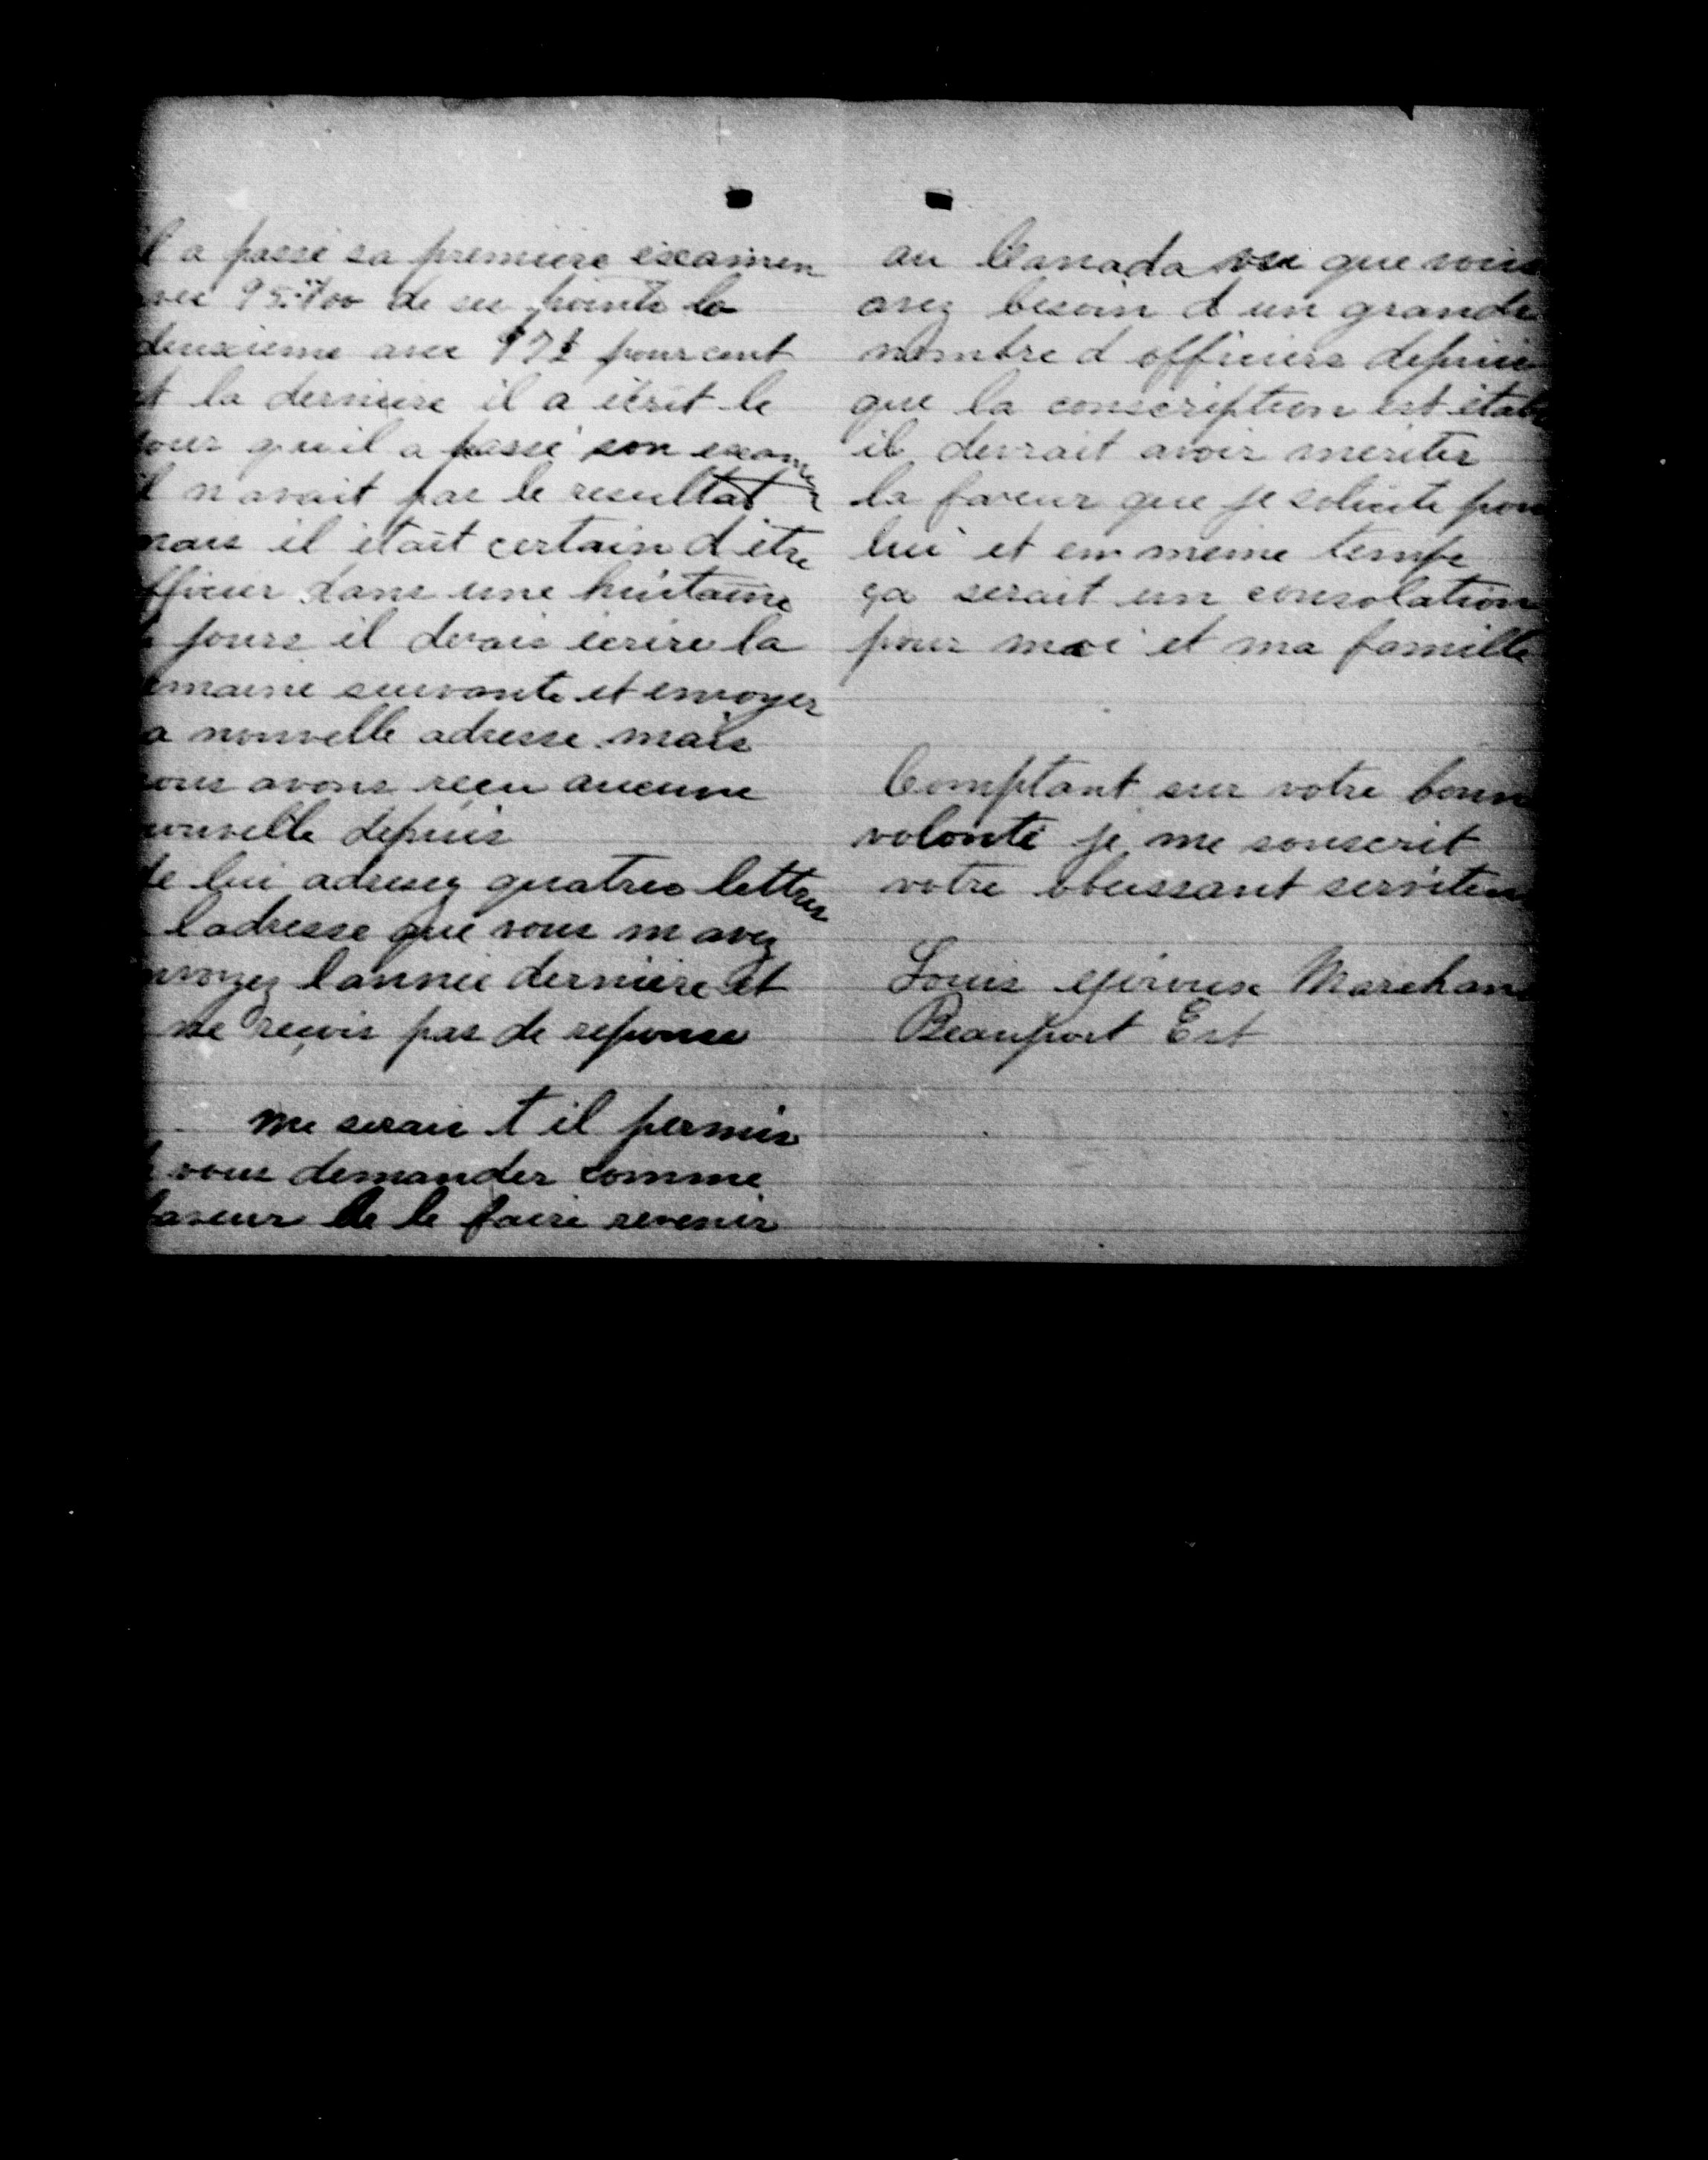 l a passé sa premiere éxamen
vec 95.%00 de ses points la
deuxieme avec 97½ pour cent
t la derniere il a écrit le
jour qu il a passé son examen
il n avait pas le resultat
mais il était certain d etre
fficier dans une huitaine
jours il devais ecrire la
emaine suivante et envoyer
a nouvelle adresse mais
nous avons reçu aucune
nouvelle depuis
Je lui adressez quatres lettres
l adresse que vous m avez
nvoyez l année derniere et
ne reçois pas de reponse
me serais t il permis
vous demander comme
faveur de le faire revenir
au Canada vu que vous
avez besoin d un grande
nombre d officiers depuis
que la conscription est étab
il devrait avoir meriter
la faveur que je solicite pou
lui et en meme temps
ça serait un consolation
pour moi et ma famille
Comptant sur votre bonn
volonté je me souscrit
votre obeissant serviteu
Louis Marchan
Beauport Est